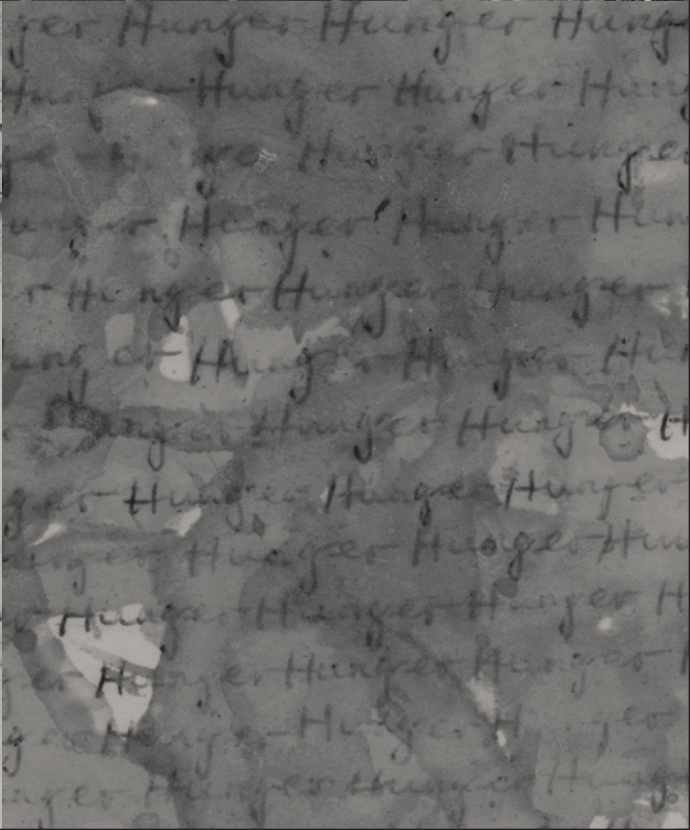 ger Hunger Hunger Hung
Hun Hunger Hunger Hun
ger Hunger Hunger
unger Hunger Hunger Hun
r Hunger Hunger Hunger
ung er Hunger Hunger Hun
Hunger Hunger Hunger H
ger Hunger Hunger Hunger
unger Hunger Hunger Hun
r Hunger Hunger Hunger H
ger Hunger Hunger Hunger
ger Hunger Hunger Hunger
nger Hunger Hunger Hunge